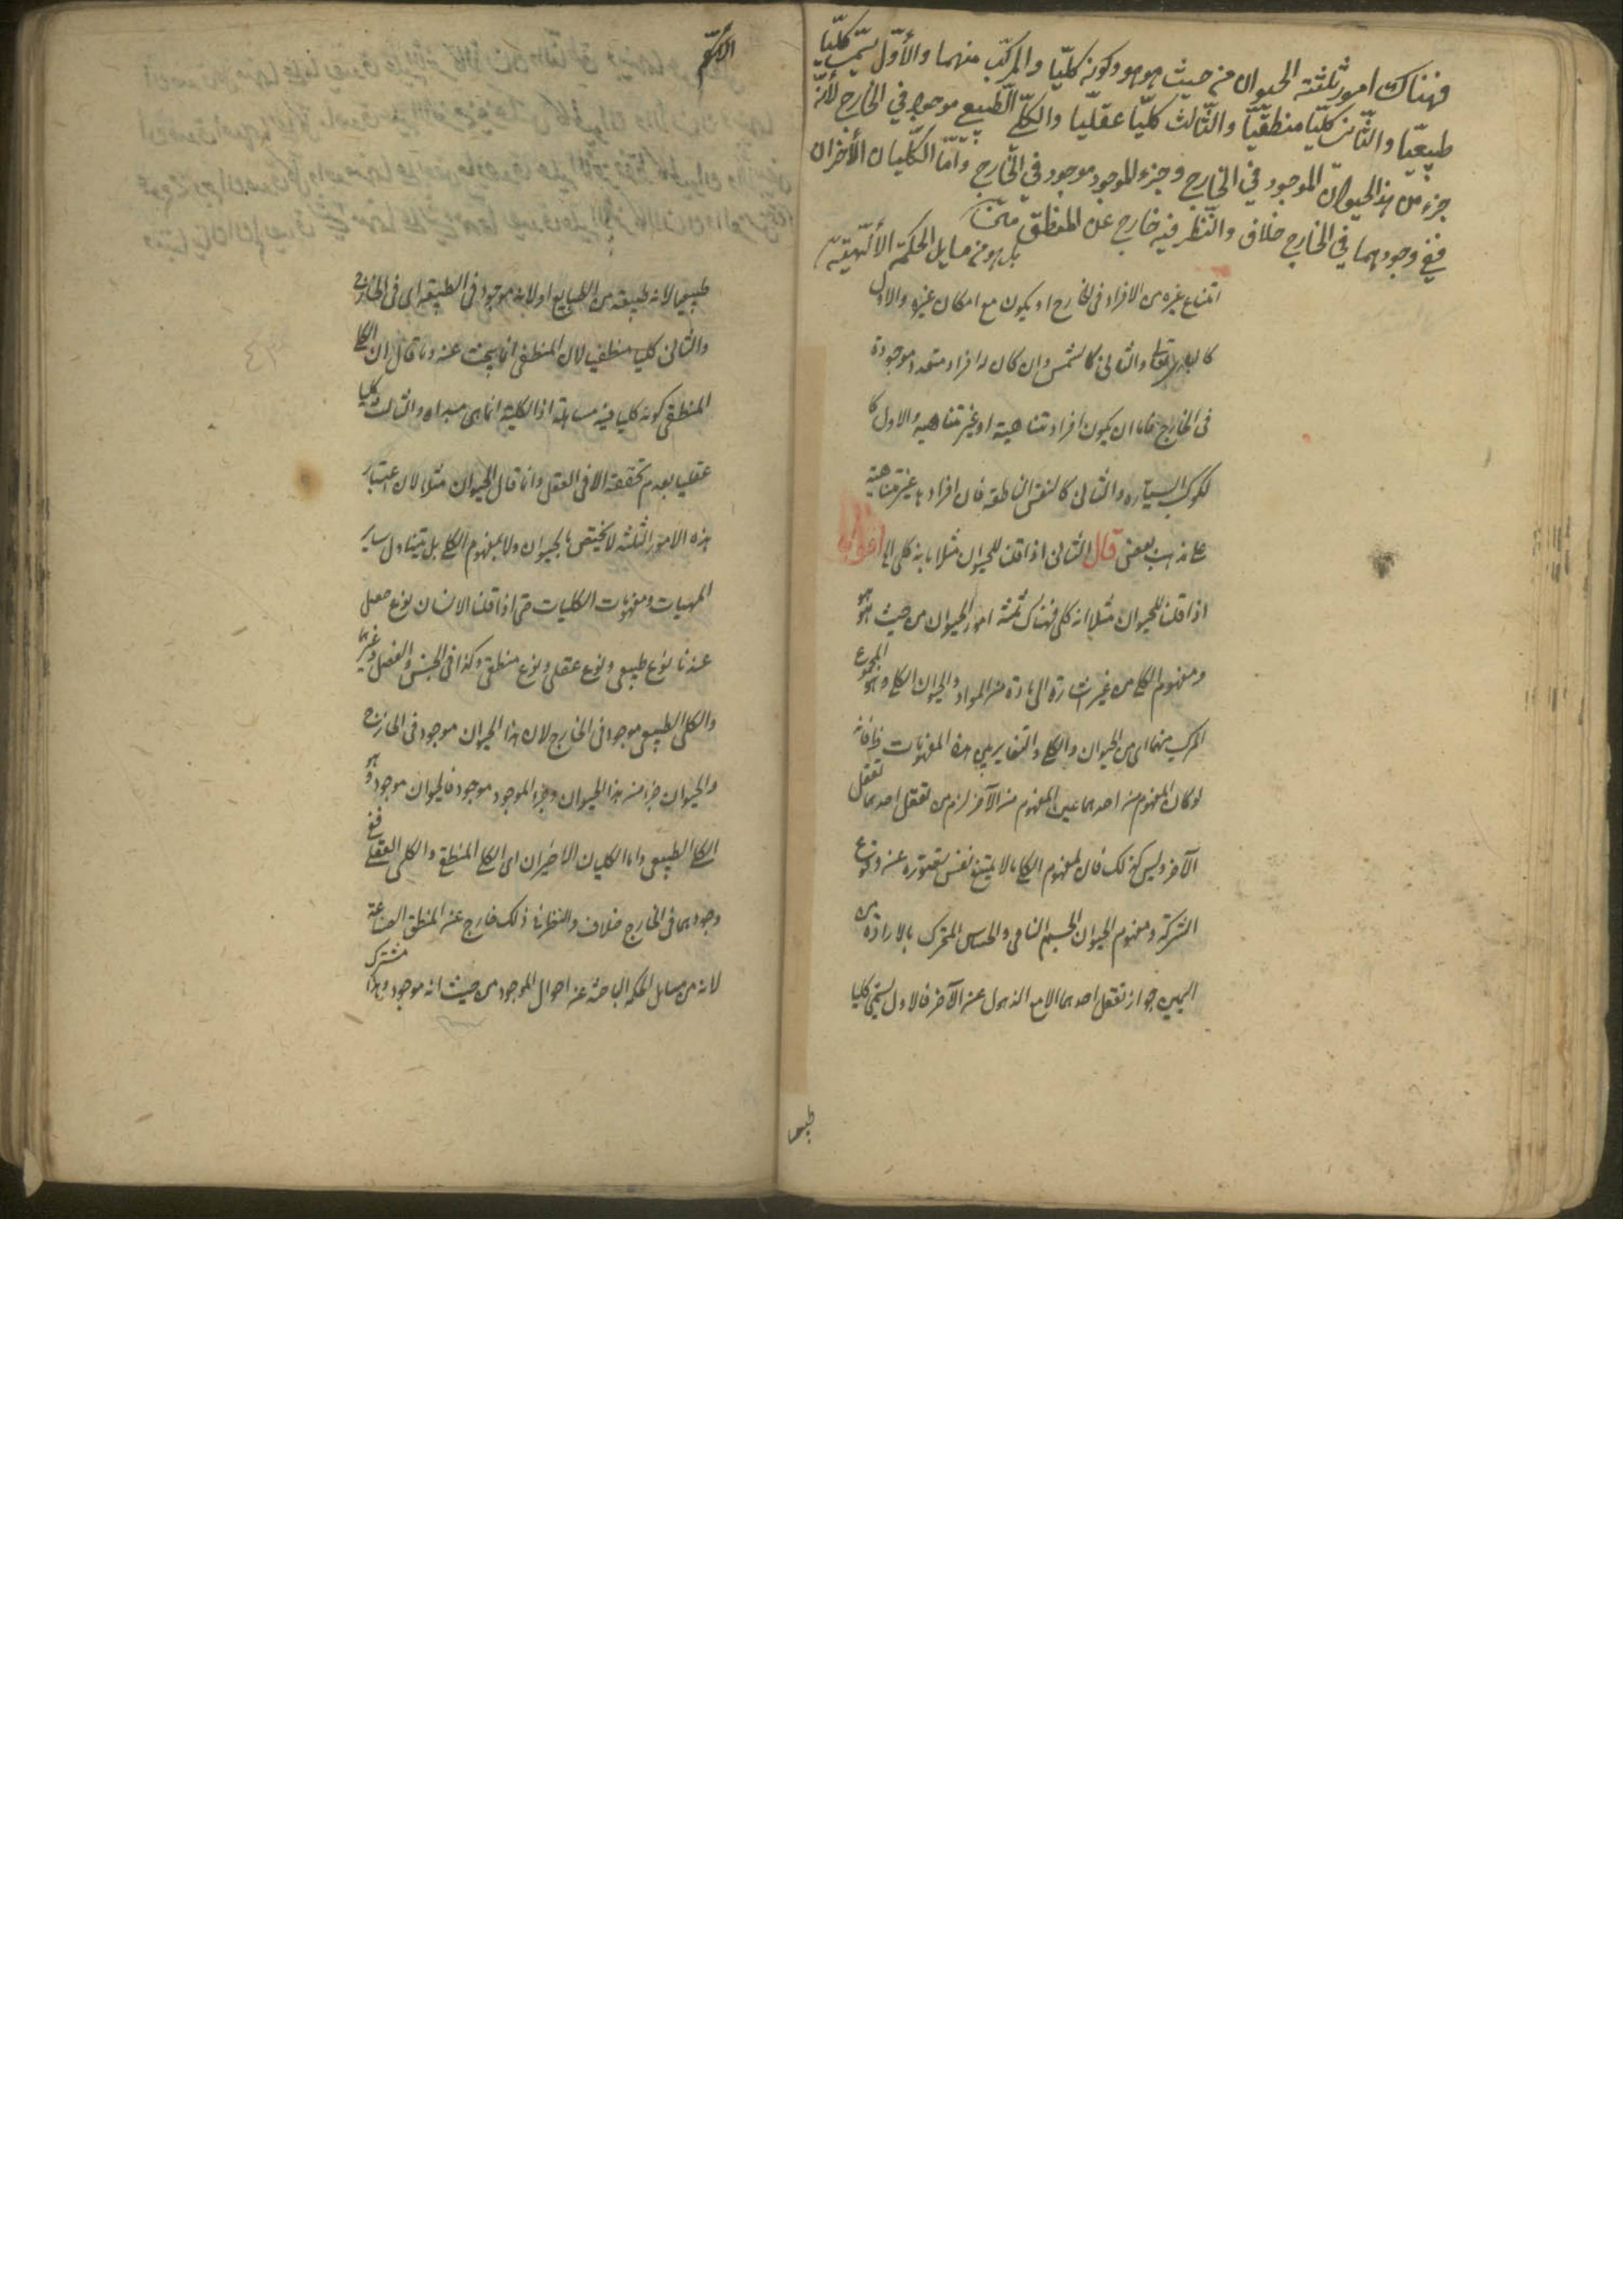 فهناك امور ثلثة الحيوان من حيث هو هو وكونه كلّيّا والمركّب منهما والأوّل يسمّى كلّيّا
طبيعيّا والثّاني كلّيّا منطقيّا والثّالث كلّيّا عقليّا والكلّي الطّبيعي موجود في الخارج لأنّه
جزء من هذا الحيوان الموجود في الخارج وجزء الموجود موجود في الخارج وامّا الكلّيّان الأخران
ففي وجودهما في الخارج خلاف والنّظر فيه خارج عن المنطق
بل هو من مسايل الحكمة الألهيّة
امتناع غيره من الافراد في الخارج او يكون مع امكان غيره والاول
كالبارى تعالى والثانى كالشمس وان كان له افراد متعددة موجودة
فى الخارج فاما ان يكون افراده متناهية او غير متناهية والاول كا
لكوكب السيارة والثانى كالنفس الناطقة فان افرادها غير متناهية
على مذهب بعض قال الثانى اذا قلنا للحيوان مثلا بانه كلى الى اقول
اذا قلنا للحيوان مثلا انه كلى فهناك ثلثة امور الحيوان من حيث هو هو
ومفهوم الكلى من غير اشارة الى مادة من المواد والحيوان الكلى وهو المجموع
المركب منهما اى من الحيوان والكلى والتغاير بين هذه المفهومات ظ فانه
لو كان المفهوم من احدهما عين المفهوم من الآخر لزم من تعقل احدهما تعقل
الآخر وليس كذلك فان مفهوم الكلى ما لا يمنع نفس تصوره عن وقوع
الشركة ومفهوم الحيوان الجسم النامى والحساس المتحرك بالارادة ومن
البين جواز تعقل احدهما الا مع الذهول عن الآخر فالاول يسمى كليا
طبيعيا
طبيعيا لانه طبيعة من الطبايع او لانه موجود فى الطبيعة اى فى الخارج
والثانى كليا منطقيا لان المنطقى انما يبحث عنه وما قال ان الكلى
المنطقى كونه كليا فيه مساهلة اذ الكلية انما هى مبداه والثالث كليا
عقليا لعدم تحققه الا فى العقل وانما قال الحيوان مثلا لان اعتبار
هذه الامور الثلثة لا يختص بالحيوان ولا بمفهوم الكلى بل يتناول ساير
المهيات ومفهومات الكليات حتى اذا قلنا الانسان نوع حصل
عندنا نوع طبيعى ونوع عقلى ونوع منطقى وكذا فى الجنس والفصل وغيرهما
والكلى الطبيعى موجود فى الخارج لان هذا الحيوان موجود فى الخارج
والحيوان جزء من هذا الحيوان وجزء الموجود موجود فالحيوان موجود وهو
الكلى الطبيعى واما الكليان الاخيران اى الكلى المنطقى والكلى العقلى ففى
وجودهما فى الخارج خلاف والنظر فى ذلك خارج عن المنطق الصناعة
لانه من مسايل الحكمة الباحثة عن احوال الموجود من حيث انه موجود وهذا مشترك